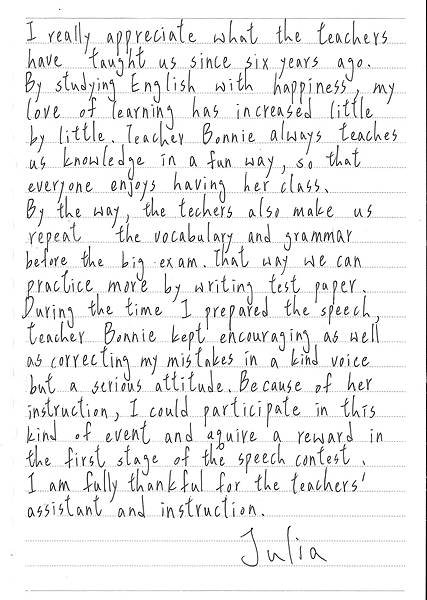 I really appreciate what the teachers
have taught us since six years ago.
By studying English with happiness, my
love of learning has increased little
by little. Teacher Bonnie always teaches
us knowledge in a fun way, so that
everyone enjoys having her class.
By the way, the techers also make us
repeat the vocabulary and grammar
before the big exam. That way we can
practice more by writing test paper.
During the time I prepared the speech,
teacher Bonnie kept encouraging as well
as correcting my mistakes in a kind voice
but a serious attitude. Because of her
instruction, I could participate in this
kind of event and aquire a reward in
the first stage of the speech contest.
I am fully thankful for the teachers'
assistant and instruction.
Julia